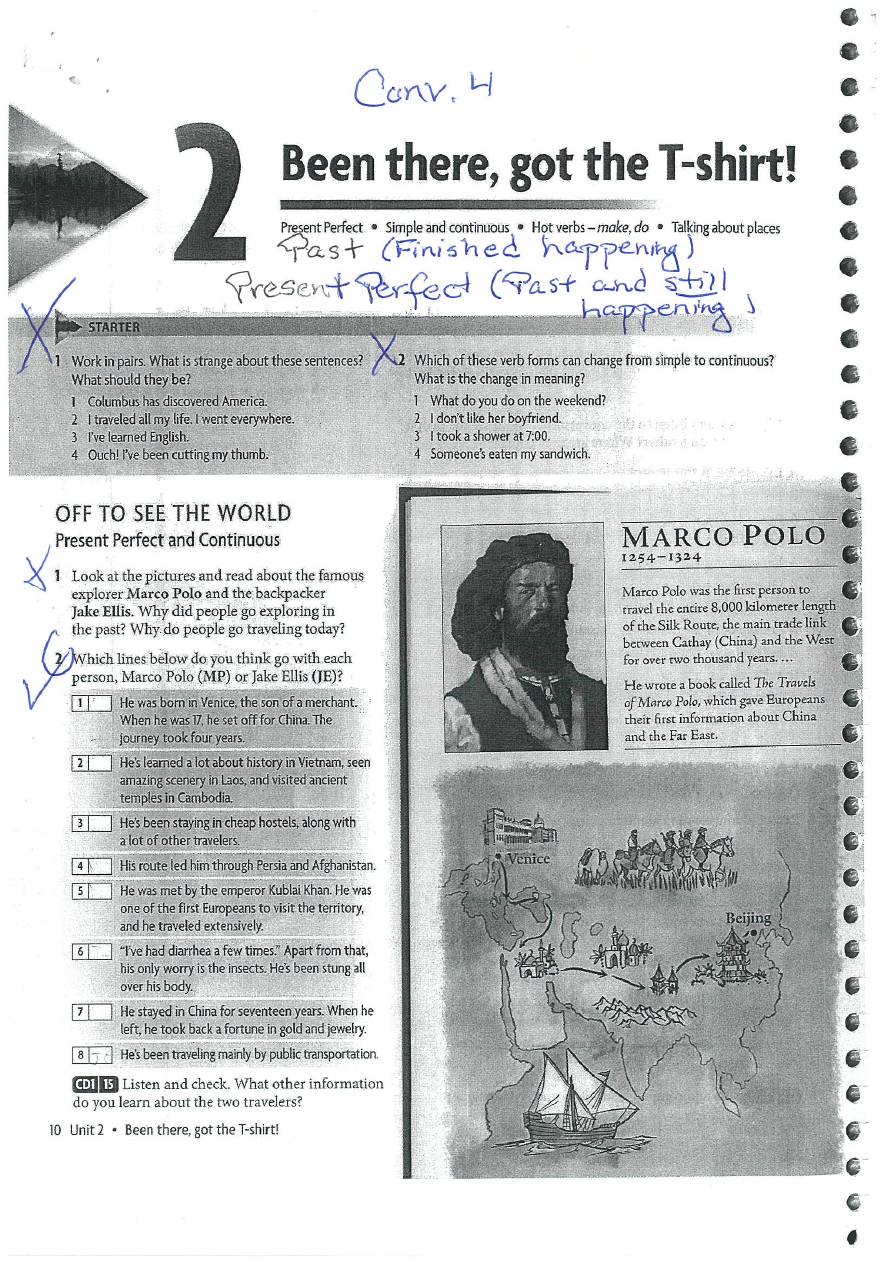 Conv. 4
2
Been there, got the T-shirt!
Present Perfect • Simple and continuous • Hot verbs – make, do • Talking about places
Past (Finished happening)
Present Perfect (Past and still
happening)
STARTER
1 Work in pairs. What is strange about these sentences?
What should they be?
1 Columbus has discovered America.
2 I traveled all my life. I went everywhere.
3 I've learned English.
4 Ouch! I've been cutting my thumb.
2 Which of these verb forms can change from simple to continuous?
What is the change in meaning?
1 What do you do on the weekend?
2 I don't like her boyfriend.
3 I took a shower at 7:00.
4 Someone's eaten my sandwich.
OFF TO SEE THE WORLD
Present Perfect and Continuous
1 Look at the pictures and read about the famous
explorer Marco Polo and the backpacker
Jake Ellis. Why did people go exploring in
the past? Why do people go traveling today?
2 Which lines below do you think go with each
person, Marco Polo (MP) or Jake Ellis (JE)?
1 He was born in Venice, the son of a merchant.
When he was 17, he set off for China. The
journey took four years.
2 He's learned a lot about history in Vietnam, seen
amazing scenery in Laos, and visited ancient
temples in Cambodia.
3 He's been staying in cheap hostels, along with
a lot of other travelers.
4 His route led him through Persia and Afghanistan.
5 He was met by the emperor Kublai Khan. He was
one of the first Europeans to visit the territory,
and he traveled extensively.
6 "I've had diarrhea a few times." Apart from that,
his only worry is the insects. He's been stung all
over his body.
7 He stayed in China for seventeen years. When he
left, he took back a fortune in gold and jewelry.
8 He's been traveling mainly by public transportation.
CD1 15 Listen and check. What other information
do you learn about the two travelers?
10 Unit 2 • Been there, got the T-shirt!
MARCO POLO
1254–1324
Marco Polo was the first person to
travel the entire 8,000 kilometer length
of the Silk Route, the main trade link
between Cathay (China) and the West
for over two thousand years. ...
He wrote a book called The Travels
of Marco Polo, which gave Europeans
their first information about China
and the Far East.
Venice
Beijing